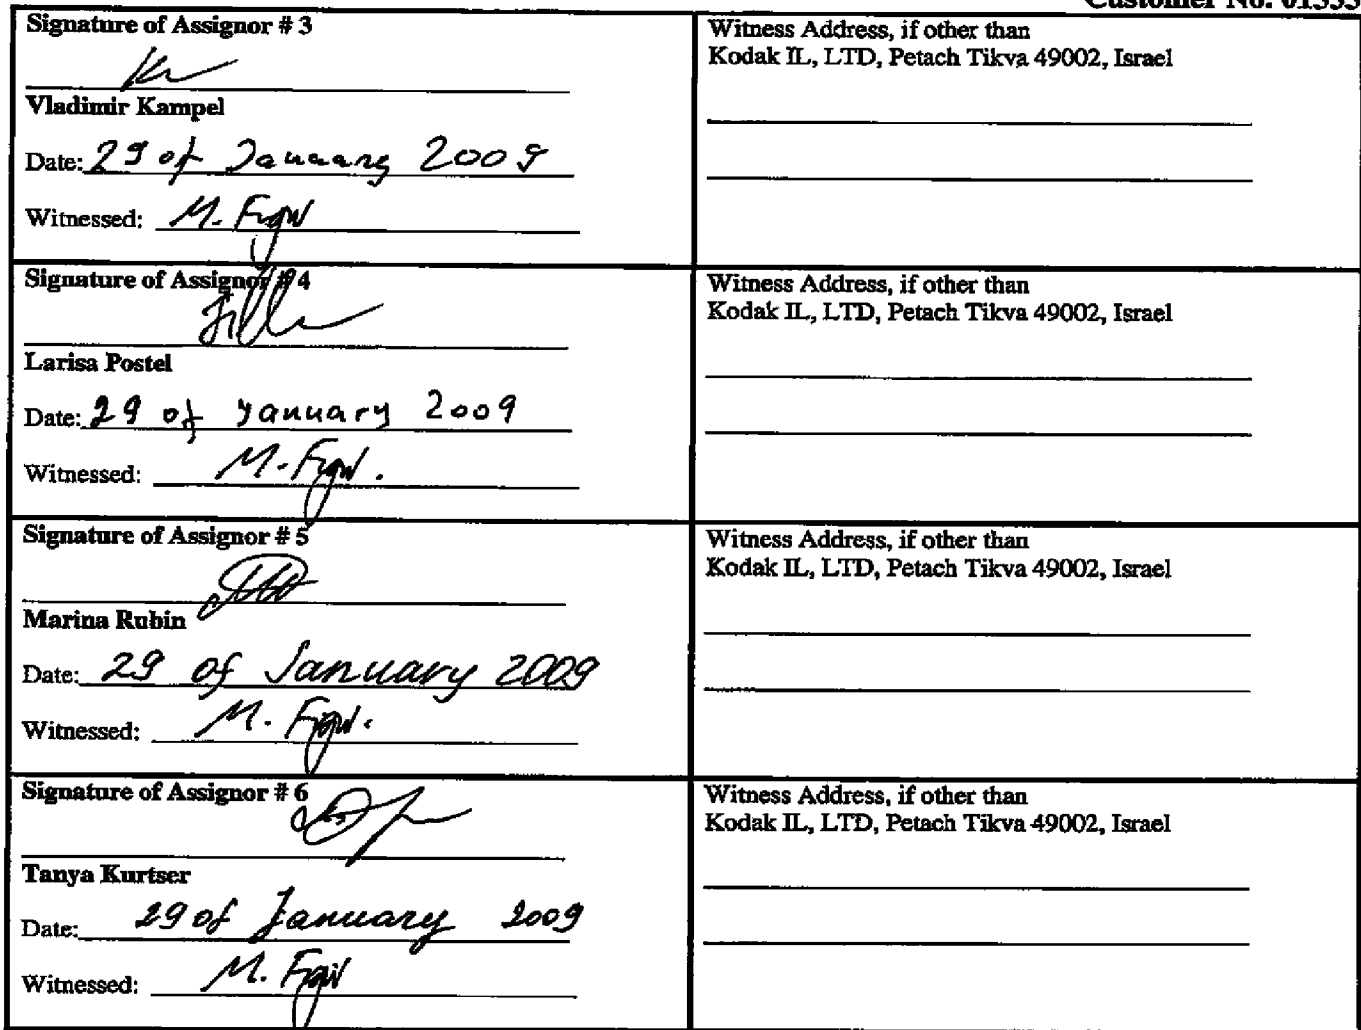 Customer No. 01333
Signature of Assignor # 3
Vladimir Kampel
Date: 29 of January 2009
Witnessed: M.
Witness Address, if other than
Kodak IL, LTD, Petach Tikva 49002, Israel
Signature of Assignor # 4
Larisa Postel
Date: 29 of January 2009
Witnessed: M.
Witness Address, if other than
Kodak IL, LTD, Petach Tikva 49002, Israel
Signature of Assignor # 5
Marina Rubin
Date: 29 of January 2009
Witnessed: M.
Witness Address, if other than
Kodak IL, LTD, Petach Tikva 49002, Israel
Signature of Assignor # 6
Tanya Kurtser
Date: 29 of January 2009
Witnessed: M.
Witness Address, if other than
Kodak IL, LTD, Petach Tikva 49002, Israel